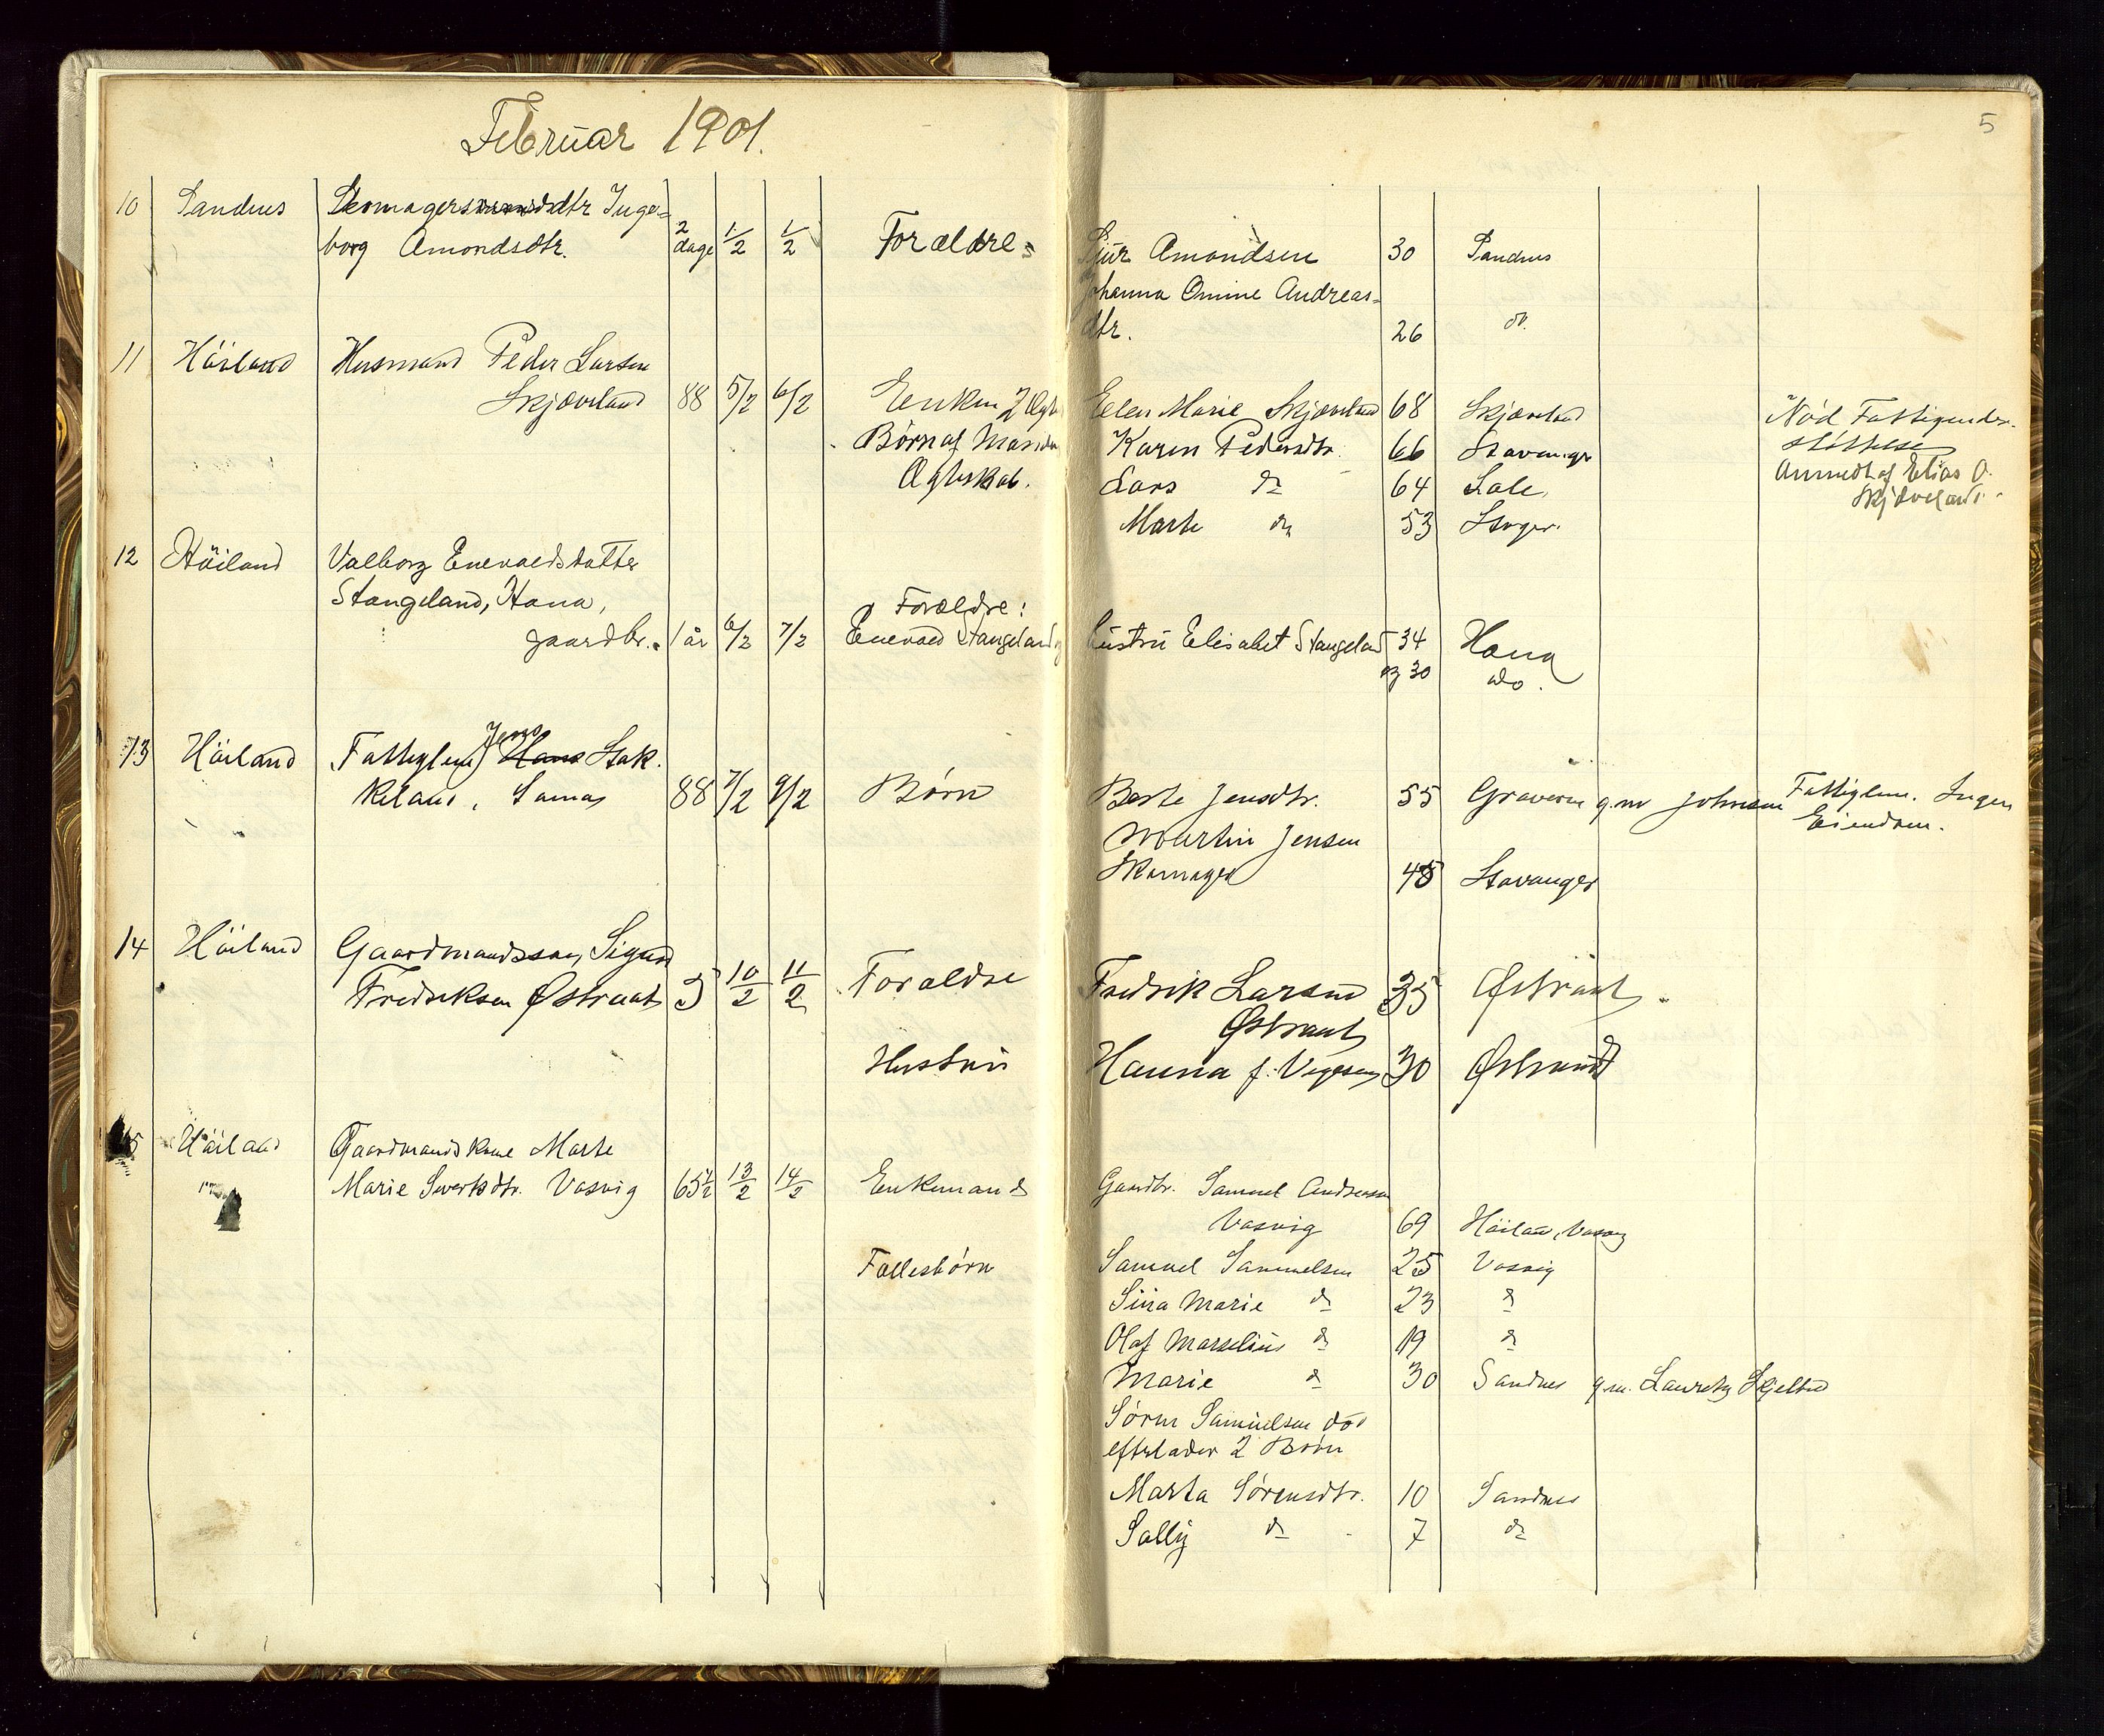 Februar 1901.
5
10 Sandnes Skomagersmandsdtr Inge=
borg Amondsdtr. 2 dage 1/2 1/2 Forældre: Sjur Amondsen 30 Sandnes
Johanna Omine Andreas=
dtr. 26 do.
11 Höiland Husmand Peder Larsen
Skjæveland 88 5/2 6/2 Enken 2 Ægte Elen Marie Skjæveland 68 Skjæveland Nöd Fattigunder-
Börn af Mandens Karen Pedersdtr. 66 Stavanger støttelse
Ægteskab. Lars do 64 Anmeldt af Elias O.
Skjæveland.
Marte do 53 Stvger.
12 Höiland Valborg Enevaldsdatter
Stangeland, Hana, Forældre:
gaardbr. 1 år 6/2 7/2 Enevald Stangeland og Hustru Elisabet Stangeland 34 Hana
og 30 do.
Jens
13 Höiland Fattiglem Hans Stok-
keland, Somas 88 7/2 9/2 Börn Berte Jensdtr. 55 Graveren g.m Johnsen Fattiglem. Ingen
Eiendom.
Martin Jensen
Skomager 48 Stavanger
14 Höiland Gaardmandssøn Sigurd
Fredriksen Østraat 3 10/2 11/2 Forældre Fredrik Larsen 35 Østraat
Østraat
Hustru Hanna f. Vegesen 30 Østraat
15 Höiland Gaardmandskone Marte
Marie Sivertsdtr. Vasvig 65 1/2 13/2 14/2 Enkemand Gaardbr. Samuel Andreassen
Vasvig 69 Höiland, Vasvig
Fællesbörn Samuel Samuelsen 25 Vasvig
Sina Marie do 23 do
Olaf Marselius do 19 do
Marie do 30 Sandnes g.m. Lauretz Skjelbred
Sören Samuelsen död
efterlader 2 Börn
Marta Sörensdtr. 10 Sandnes
Sally do 7 do